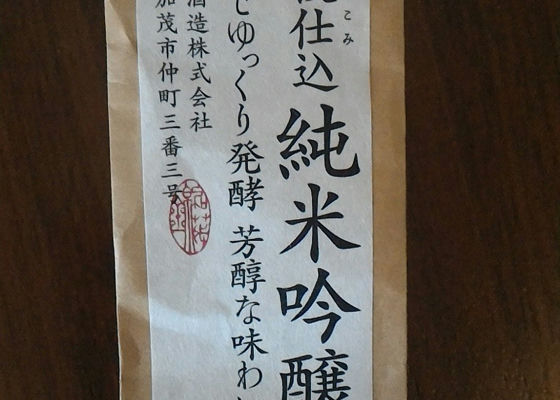 仕込
こみ
純米吟醸
じゆっくり発酵 芳醇な味わい
酒造株式会社
加茂市仲町三番三号